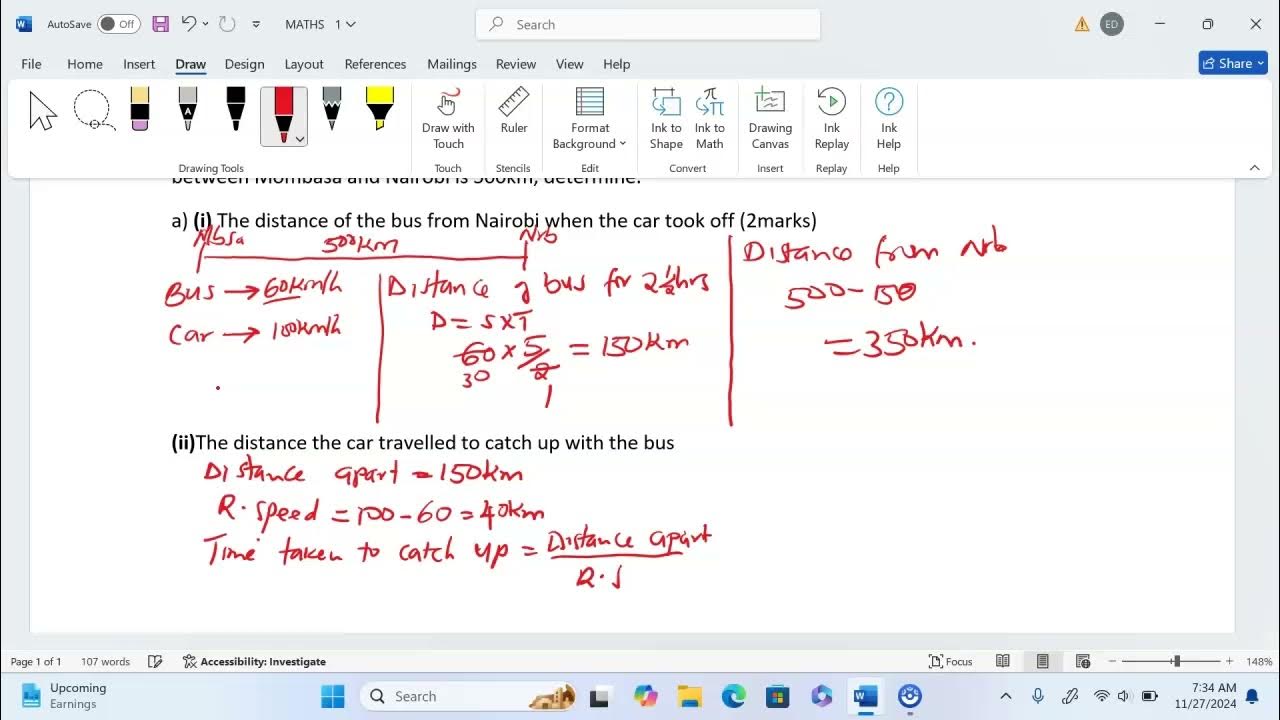 AutoSave Off MATHS 1 Search ED
File Home Insert Draw Design Layout References Mailings Review View Help Share
Draw with Touch
Ruler
Format Background
Ink to Shape
Ink to Math
Drawing Canvas
Ink Replay
Ink Help
Drawing Tools Touch Stencils Edit Convert Insert Replay Help
between Mombasa and Nairobi is 500km, determine:
a) (i) The distance of the bus from Nairobi when the car took off (2marks)
Mbsa 500km Nrb
Bus → 60km/h
Car → 100km/h
Distance of bus for 2 1/2 hrs
D = S x T
60 x 5/2 = 150km
30
1
Distance from Nrb
500 - 150
= 350km.
(ii)The distance the car travelled to catch up with the bus
Distance apart = 150km
R. speed = 100 - 60 = 40km
Time taken to catch up = Distance apart
R.S
Page 1 of 1 107 words Accessibility: Investigate Focus 148%
Upcoming
Earnings
Search
7:34 AM
11/27/2024